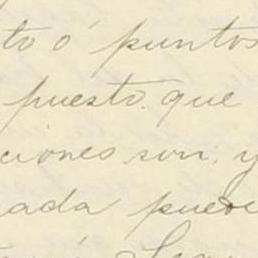 to ó puntos
puesto que
ciones son, y
nada puede